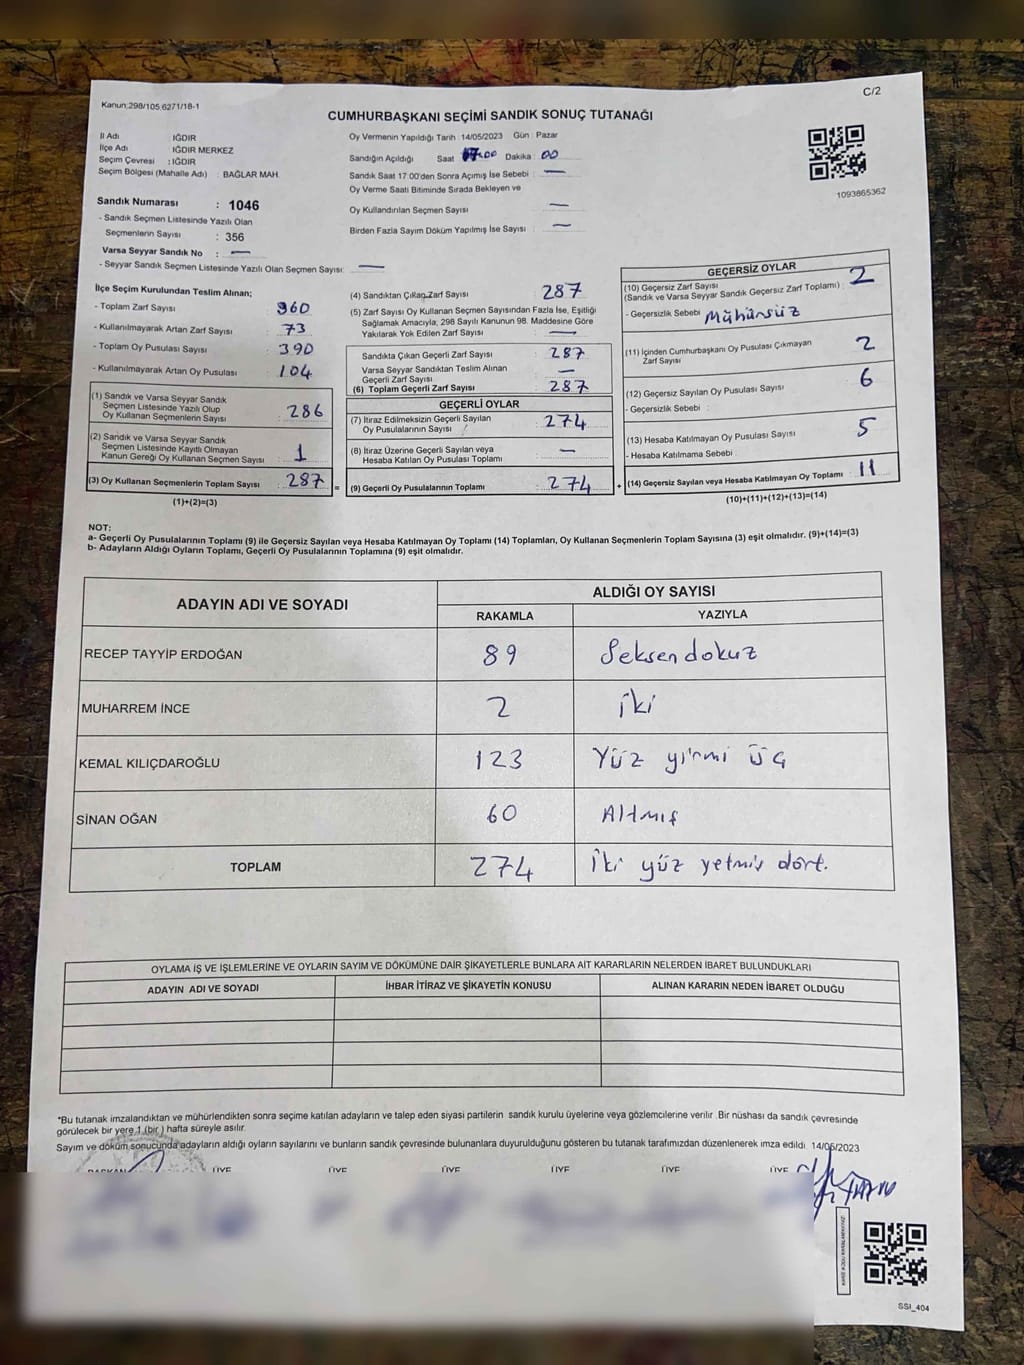 C/2
Kanun:298/105 6271/18-1
CUMHURBAŞKANI SEÇİMİ SANDIK SONUÇ TUTANAĞI
İl Adı IĞDIR
İlçe Adı IĞDIR MERKEZ
Seçim Çevresi : IĞDIR
Seçim Bölgesi (Mahalle Adı) : BAĞLAR MAH.
Sandık Numarası : 1046
- Sandık Seçmen Listesinde Yazılı Olan
Seçmenlerin Sayısı : 356
Varsa Seyyar Sandık No : —
- Seyyar Sandık Seçmen Listesinde Yazılı Olan Seçmen Sayısı: —
Oy Vermenin Yapıldığı Tarih : 14/05/2023 Gün : Pazar
Sandığın Açıldığı Saat 17.00 Dakika : 00
Sandık Saat 17.00'den Sonra Açımış İse Sebebi : —
Oy Verme Saati Bitiminde Sırada Bekleyen ve
Oy Kullandırılan Seçmen Sayısı —
Birden Fazla Sayım Döküm Yapılmış İse Sayısı : —
1093865362
İlçe Seçim Kurulundan Teslim Alınan;
- Toplam Zarf Sayısı : 360
- Kullanılmayarak Artan Zarf Sayısı : 73
- Toplam Oy Pusulası Sayısı : 390
- Kullanılmayarak Artan Oy Pusulası : 104
(1) Sandık ve Varsa Seyyar Sandık
Seçmen Listesinde Yazılı Olup
Oy Kullanan Seçmenlerin Sayısı : 286
(2) Sandık ve Varsa Seyyar Sandık
Seçmen Listesinde Kayıtlı Olmayan
Kanun Gereği Oy Kullanan Seçmen Sayısı : 1
(3) Oy Kullanan Seçmenlerin Toplam Sayısı : 287 =
(1)+(2)=(3)
(4) Sandıktan Çıkan Zarf Sayısı : 287
(5) Zarf Sayısı Oy Kullanan Seçmen Sayısından Fazla İse, Eşitliği
Sağlamak Amacıyla, 298 Sayılı Kanunun 98. Maddesine Göre
Yakılarak Yok Edilen Zarf Sayısı : —
Sandıkta Çıkan Geçerli Zarf Sayısı : 287
Varsa Seyyar Sandıktan Teslim Alınan
Geçerli Zarf Sayısı : —
(6) Toplam Geçerli Zarf Sayısı : 287
GEÇERLİ OYLAR
(7) İtiraz Edilmeksizin Geçerli Sayılan
Oy Pusulalarının Sayısı : 274
(8) İtiraz Üzerine Geçerli Sayılan veya
Hesaba Katılan Oy Pusulası Toplamı : —
(9) Geçerli Oy Pusulalarının Toplamı : 274 +
GEÇERSİZ OYLAR
(10) Geçersiz Zarf Sayısı
(Sandık ve Varsa Seyyar Sandık Geçersiz Zarf Toplamı) : 2
- Geçersizlik Sebebi : Mühürsüz
(11) İçinden Cumhurbaşkanı Oy Pusulası Çıkmayan
Zarf Sayısı : 2
(12) Geçersiz Sayılan Oy Pusulası Sayısı : 6
- Geçersizlik Sebebi :
(13) Hesaba Katılmayan Oy Pusulası Sayısı : 5
- Hesaba Katılmama Sebebi :
(14) Geçersiz Sayılan veya Hesaba Katılmayan Oy Toplamı : 11
(10)+(11)+(12)+(13)=(14)
NOT:
a- Geçerli Oy Pusulalarının Toplamı (9) ile Geçersiz Sayılan veya Hesaba Katılmayan Oy Toplamı (14) Toplamları, Oy Kullanan Seçmenlerin Toplam Sayısına (3) eşit olmalıdır. (9)+(14)=(3)
b- Adayların Aldığı Oyların Toplamı, Geçerli Oy Pusulalarının Toplamına (9) eşit olmalıdır.
ADAYIN ADI VE SOYADI ALDIĞI OY SAYISI
RAKAMLA YAZIYLA
RECEP TAYYİP ERDOĞAN 89 Seksen dokuz
MUHARREM İNCE 2 iki
KEMAL KILIÇDAROĞLU 123 Yüz yirmi üç
SİNAN OĞAN 60 Altmış
TOPLAM 274 İki yüz yetmiş dört.
OYLAMA İŞ VE İŞLEMLERİNE VE OYLARIN SAYIM VE DÖKÜMÜNE DAİR ŞİKAYETLERLE BUNLARA AİT KARARLARIN NELERDEN İBARET BULUNDUKLARI
ADAYIN ADI VE SOYADI İHBAR İTİRAZ VE ŞİKAYETİN KONUSU ALINAN KARARIN NEDEN İBARET OLDUĞU
*Bu tutanak imzalandıktan ve mühürlendikten sonra seçime katılan adayların ve talep eden siyasi partilerin sandık kurulu üyelerine veya gözlemcilerine verilir. Bir nüshası da sandık çevresinde
görülecek bir yere 1 (bir) hafta süreyle asılır.
Sayım ve döküm sonucunda adayların aldığı oyların sayılarını ve bunların sandık çevresinde bulunanlara duyurulduğunu gösteren bu tutanak tarafımızdan düzenlenerek imza edildi. 14/05/2023
BAŞKAN ÜYE ÜYE ÜYE ÜYE ÜYE ÜYE
SSI_404